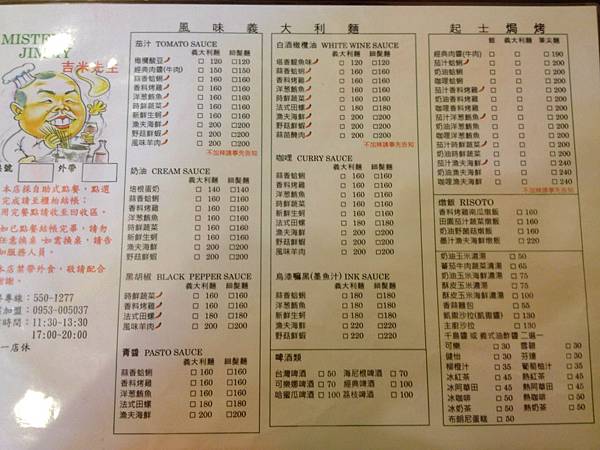 MISTER
JIMMY
吉米先生
外帶
本店採自助式點餐，點選
完成請至櫃檯結帳；
用完餐點請收至回收區。
如已點餐結帳完畢，請勿
任意換桌，如需換桌，請告
知服務人員。
本店禁帶外食，敬請配合
謝謝。
專線：550-1277
加盟：0953-005037
時間：11:30-13:30
17:00-20:00
一店休
風味義大利麵
茄汁 TOMATO SAUCE
義大利麵 細髮麵
橄欖酸豆 □ 120 □120
經典肉醬(牛肉) □ 150 □150
蒜香蛤蜊 □ 160 □160
香料烤雞 □ 160 □160
洋蔥鮪魚 □ 160 □160
時鮮蔬菜 □ 160 □160
新鮮生蚵 □ 160 □160
法式田螺 □ 180 □180
漁夫海鮮 □ 200 □200
野菇鮮蝦 □ 200 □200
風味羊肉 □ 200 □200
不加辣請事先告知
奶油 CREAM SAUCE
義大利麵 細髮麵
培根蛋奶 □ 140 □ 140
蒜香蛤蜊 □ 160 □ 160
香料烤雞 □ 160 □ 160
洋蔥鮪魚 □ 160 □ 160
時鮮蔬菜 □ 160 □ 160
新鮮生蚵 □ 160 □ 160
法式田螺 □ 180 □ 180
漁夫海鮮 □ 200 □ 200
野菇鮮蝦 □ 200 □ 200
黑胡椒 BLACK PEPPER SAUCE
義大利麵 細髮麵
時鮮蔬菜 □ 160 □ 160
香料烤雞 □ 160 □ 160
洋蔥鮪魚 □ 160 □ 160
風味羊肉 □ 200 □ 200
青醬 PASTO SAUCE
義大利麵 細髮麵
蒜香蛤蜊 □ 160 □ 160
香料烤雞 □ 160 □ 160
洋蔥鮪魚 □ 160 □ 160
法式田螺 □ 180 □ 180
漁夫海鮮 □ 200 □ 200
白酒橄欖油 WHITE WINE SAUCE
義大利麵 細髮麵
塔香鯷魚 □ 160 □ 160
蒜香蛤蜊 □ 160 □ 160
香料烤雞 □ 160 □ 160
洋蔥鮪魚 □ 160 □ 160
時鮮蔬菜 □ 160 □ 160
法式田螺 □ 180 □ 180
漁夫海鮮 □ 200 □ 200
野菇鮮蝦 □ 200 □ 200
蒜茵醃肉 □ 200 □ 200
不加辣請事先告知
咖哩 CURRY SAUCE
義大利麵 細髮麵
蒜香蛤蜊 □ 160 □ 160
香料烤雞 □ 160 □ 160
洋蔥鮪魚 □ 160 □ 160
時鮮蔬菜 □ 160 □ 160
新鮮生蚵 □ 160 □ 160
法式田螺 □ 180 □ 180
漁夫海鮮 □ 200 □ 200
野菇鮮蝦 □ 200 □ 200
烏漆嘛黑(墨魚汁) INK SAUCE
義大利麵 細髮麵
蒜香蛤蜊 □ 180 □ 180
香料烤雞 □ 180 □ 180
洋蔥鮪魚 □ 180 □ 180
法式田螺 □ 200 □ 200
漁夫海鮮 □ 220 □ 220
啤酒類
台灣啤酒 □ 50 海尼根啤酒 □ 70
可樂娜啤酒 □ 100 經典啤酒 □ 100
哈蜜瓜啤酒 □ 100 荔枝啤酒 □ 100
起士焗烤
飯 義大利麵 筆尖麵
經典肉醬(牛肉) □ □ □190
茄汁蛤蜊 □ □ □200
奶油蛤蜊 □ □ □200
咖哩蛤蜊 □ □ □200
茄汁香料烤雞 □ □ □200
奶油香料烤雞 □ □ □200
咖哩香料烤雞 □ □ □200
茄汁洋蔥鮪魚 □ □ □200
奶油洋蔥鮪魚 □ □ □200
咖哩洋蔥鮪魚 □ □ □200
茄汁時鮮蔬菜 □ □ □200
奶油時鮮蔬菜 □ □ □200
咖哩時鮮蔬菜 □ □ □200
茄汁漁夫海鮮 □ □ □240
奶油漁夫海鮮 □ □ □240
咖哩漁夫海鮮 □ □ □240
不加辣請事先告知
燉飯 RISOTO
香料烤雞南瓜燉飯 □ 160
田園茄汁蔬菜燉飯 □ 160
奶油野菌菇燉飯 □ 160
墨汁漁夫海鮮燉飯 □ 220
奶油玉米濃湯 □ 50
蕃茄牛肉蔬菜清湯 □ 65
奶油玉米海鮮濃湯 □ 65
酥皮玉米濃湯 □ 75
酥皮玉米海鮮濃湯 □ 100
香蒜麵包 □ 55
凱撒沙拉(凱薩醬) □ 50
主廚沙拉 □ 50
千島醬 或 義式油醋醬 二選一
可樂 □ 30 雪碧 □ 30
健怡 □ 30 芬達 □ 30
柳橙汁 □ 35 葡萄柚汁 □ 35
冰紅茶 □ 45 熱紅茶 □ 45
冰阿華田 □ 45 熱阿華田 □ 45
冰咖啡 □ 50 熱咖啡 □ 50
冰奶茶 □ 50 熱奶茶 □ 50
布朗尼蛋糕 □ 50